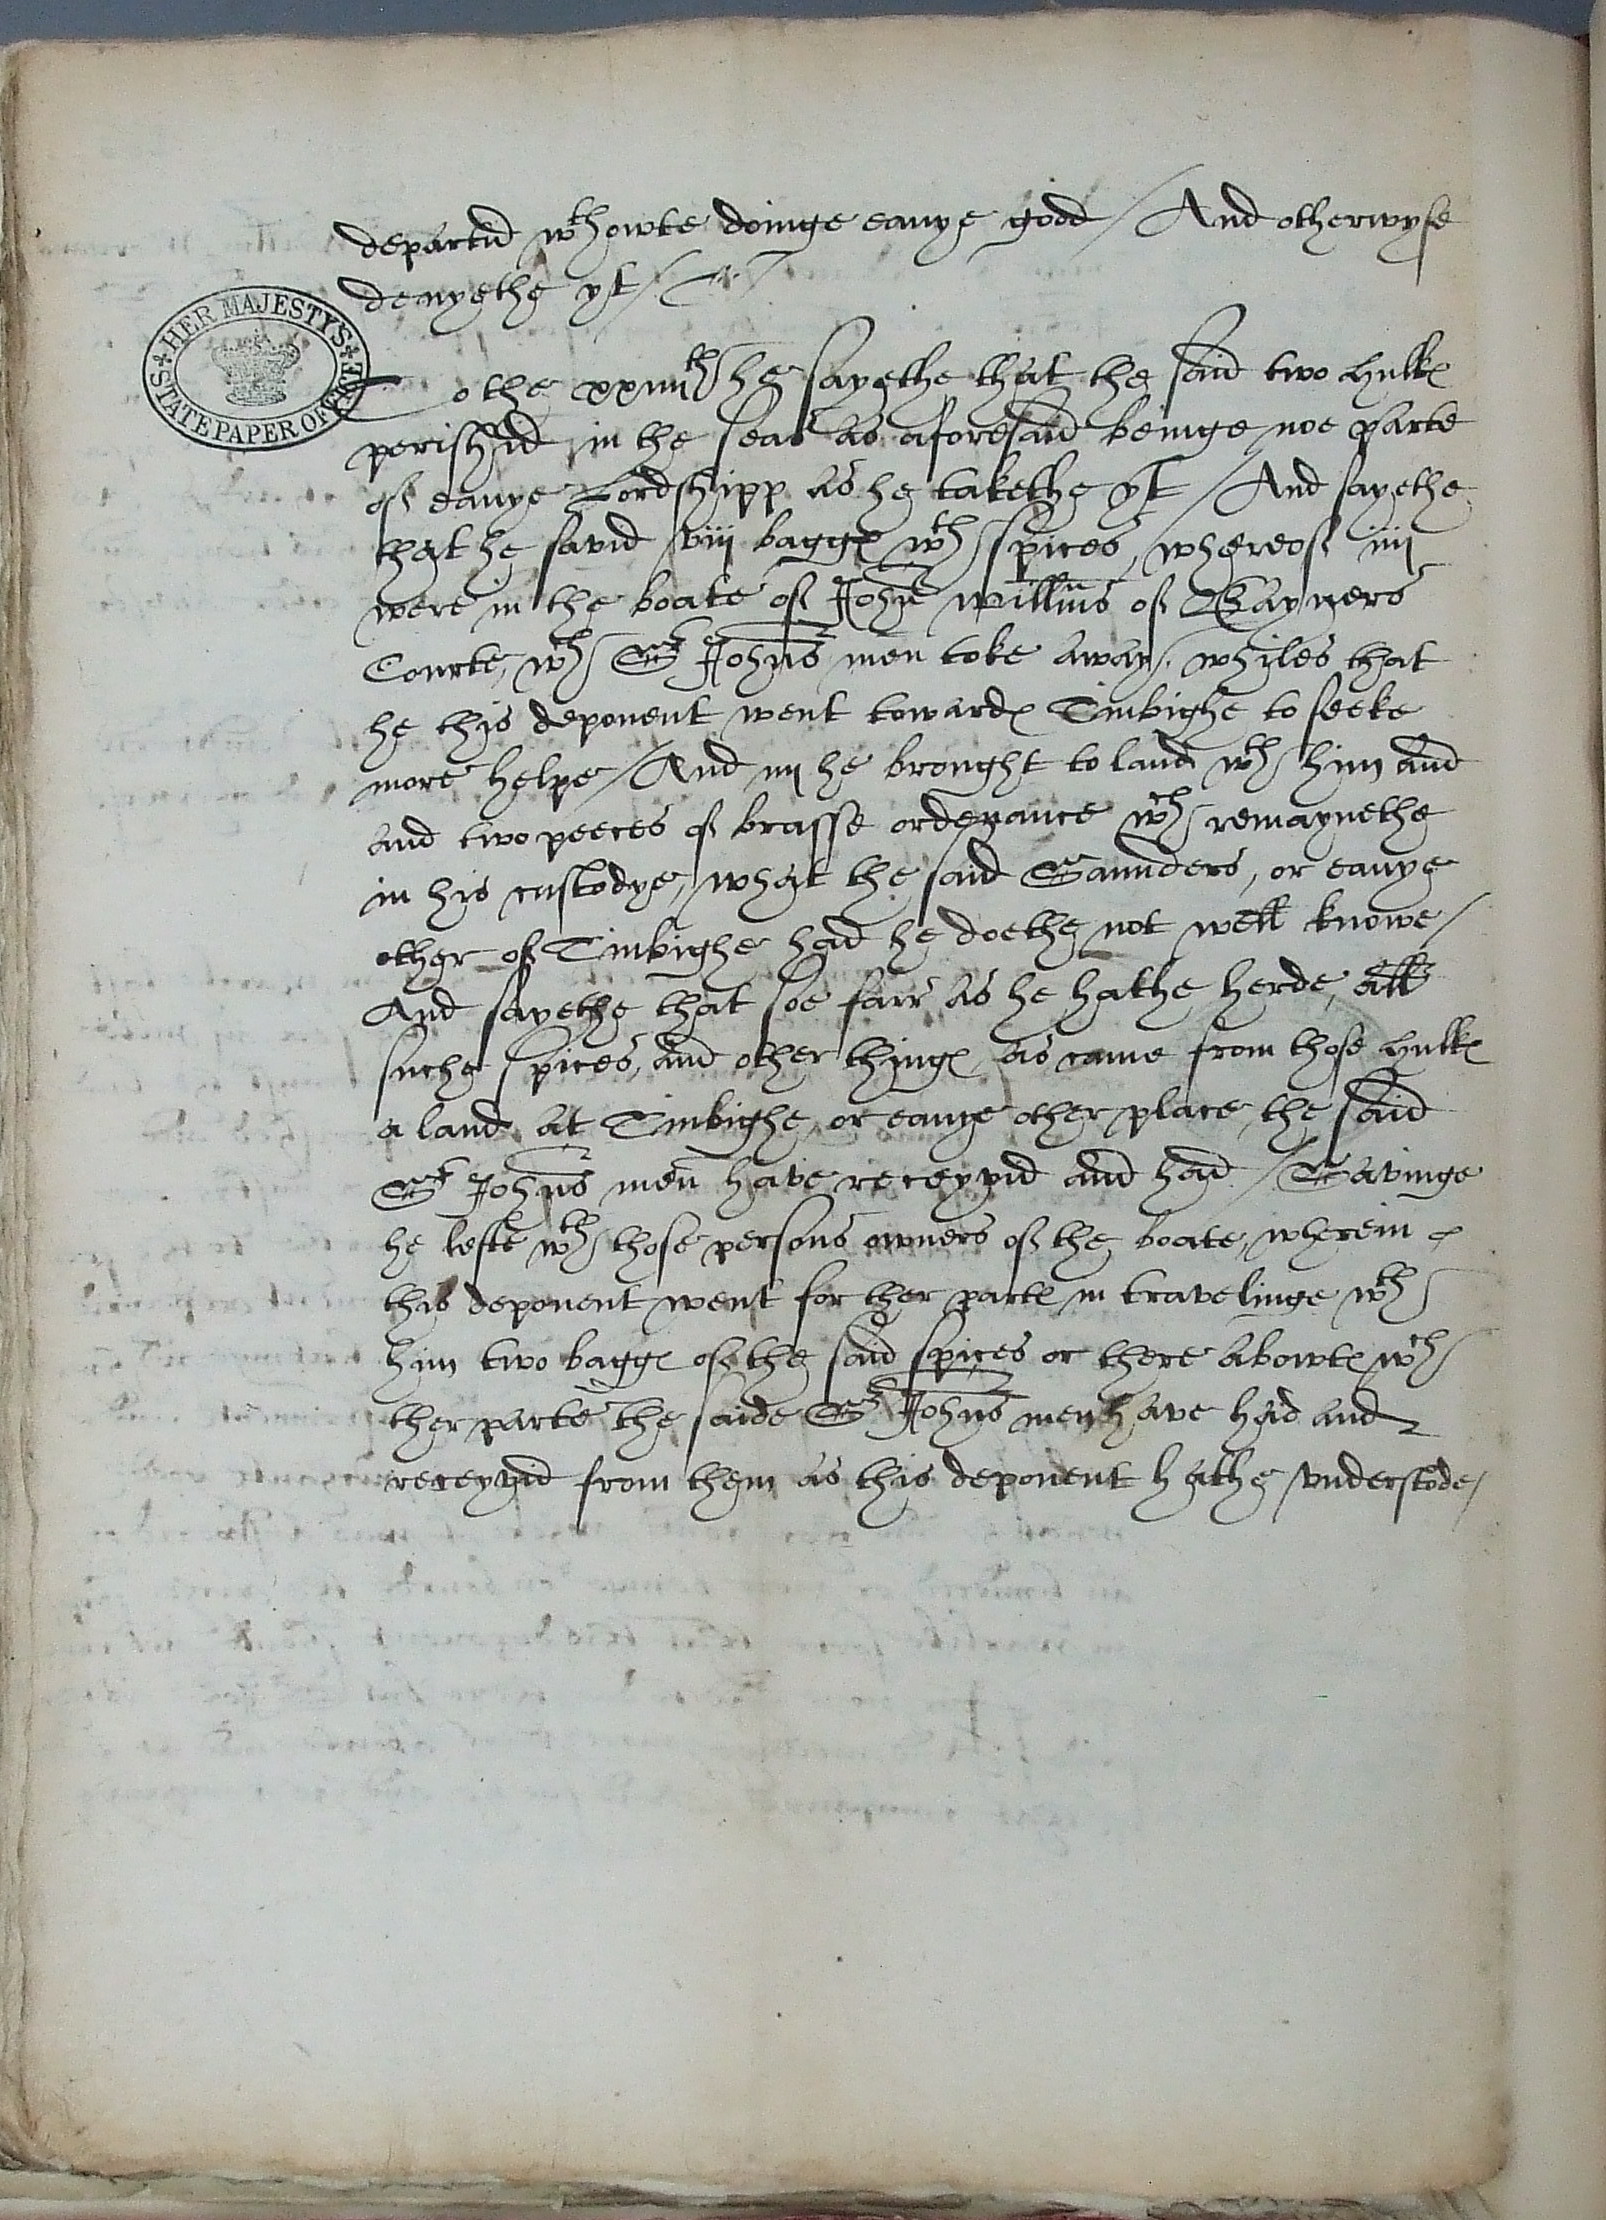 departid wthowte doinge eanye godd / And otherwyse
denyethe yt /
HER MAJESTY'S STATE PAPER OFFICE
To the xxiiiith he sayethe that the said two hulkes
perishid in the seas as aforesaid beinge noe parte
of eanye Lordshipp as he takethe yt / And sayethe
that he savid viij bagges wth spices, whereof iiij
were in the boate of John Willms of Gayners
Courte, wch Sr Johns men toke away / whiles that
he this deponent went towardes Tinbighe to seeke
more helpe / And iiij he brought to land wth him and
and two peeces of brasse ordenance wch remaynethe
in his custodye, what the said Saunders, or eanye
other of Tinbighe had he doethe not well knowe /
And sayethe that soe farr as he hathe herde, all
suche spices, and other thinges as came from those hulkes
a land at Tinbighe, or eanye other place, the said
Sr Johns men have receyvid and had / Savinge
he lefte wth those persons owners of the boate, wherein
this deponent went for ther partes in travelinge wth
him two bagges of the said spices or there abowtes wch
ther parte the saide Sr Johns men have had and
receyvid from them as this deponent hathe understode /